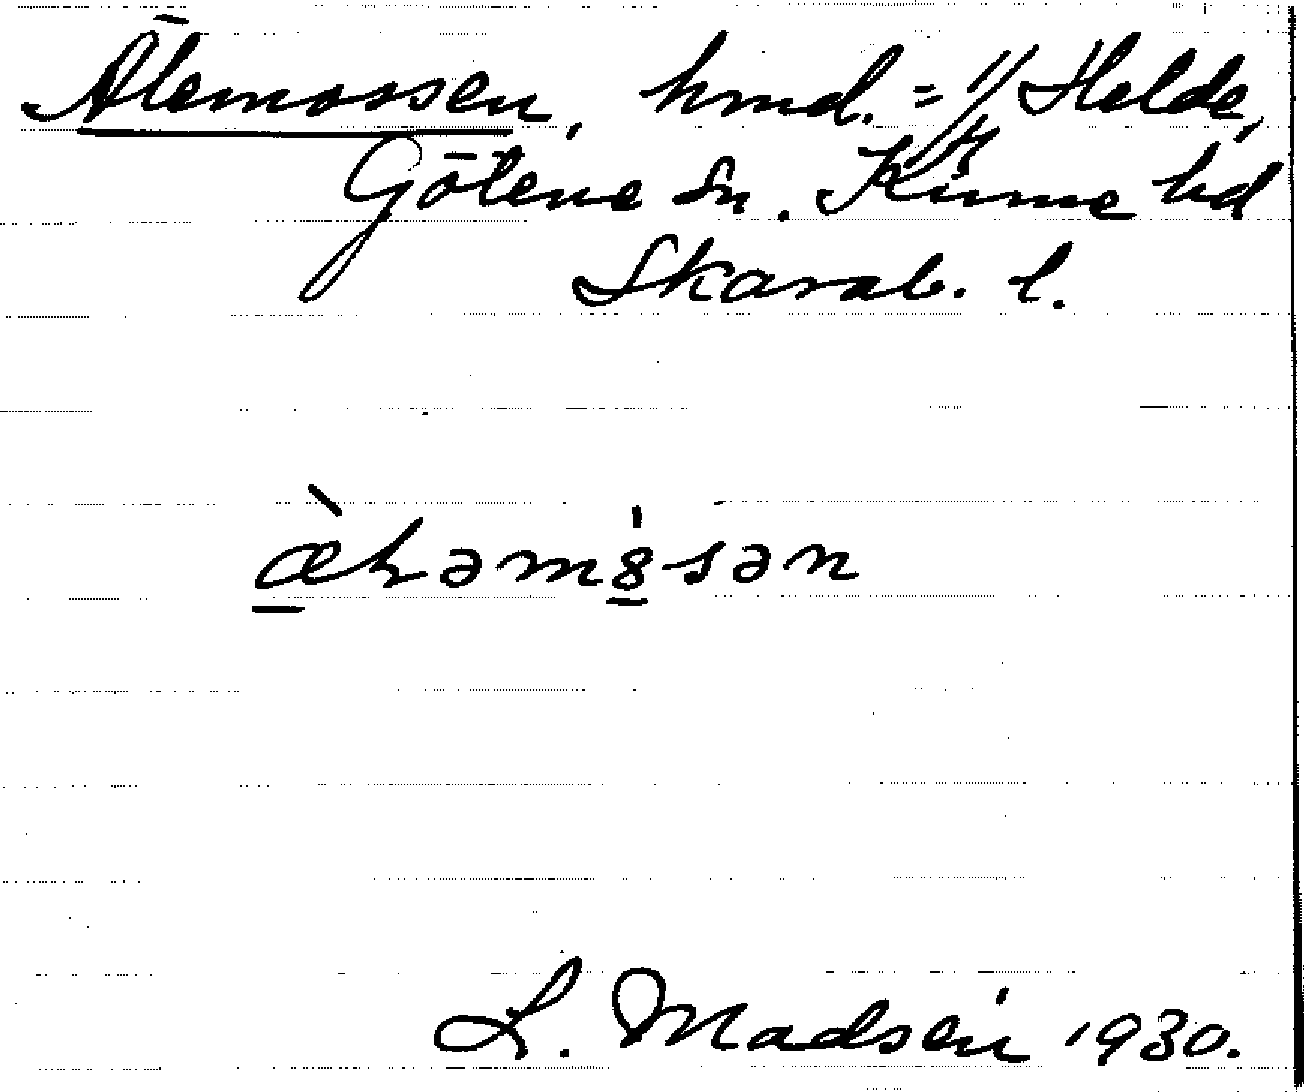 Älemossen, hmd. = Helde,
Götene sn. Kinne hd
Skarab. l.
L. Madsén 1930.